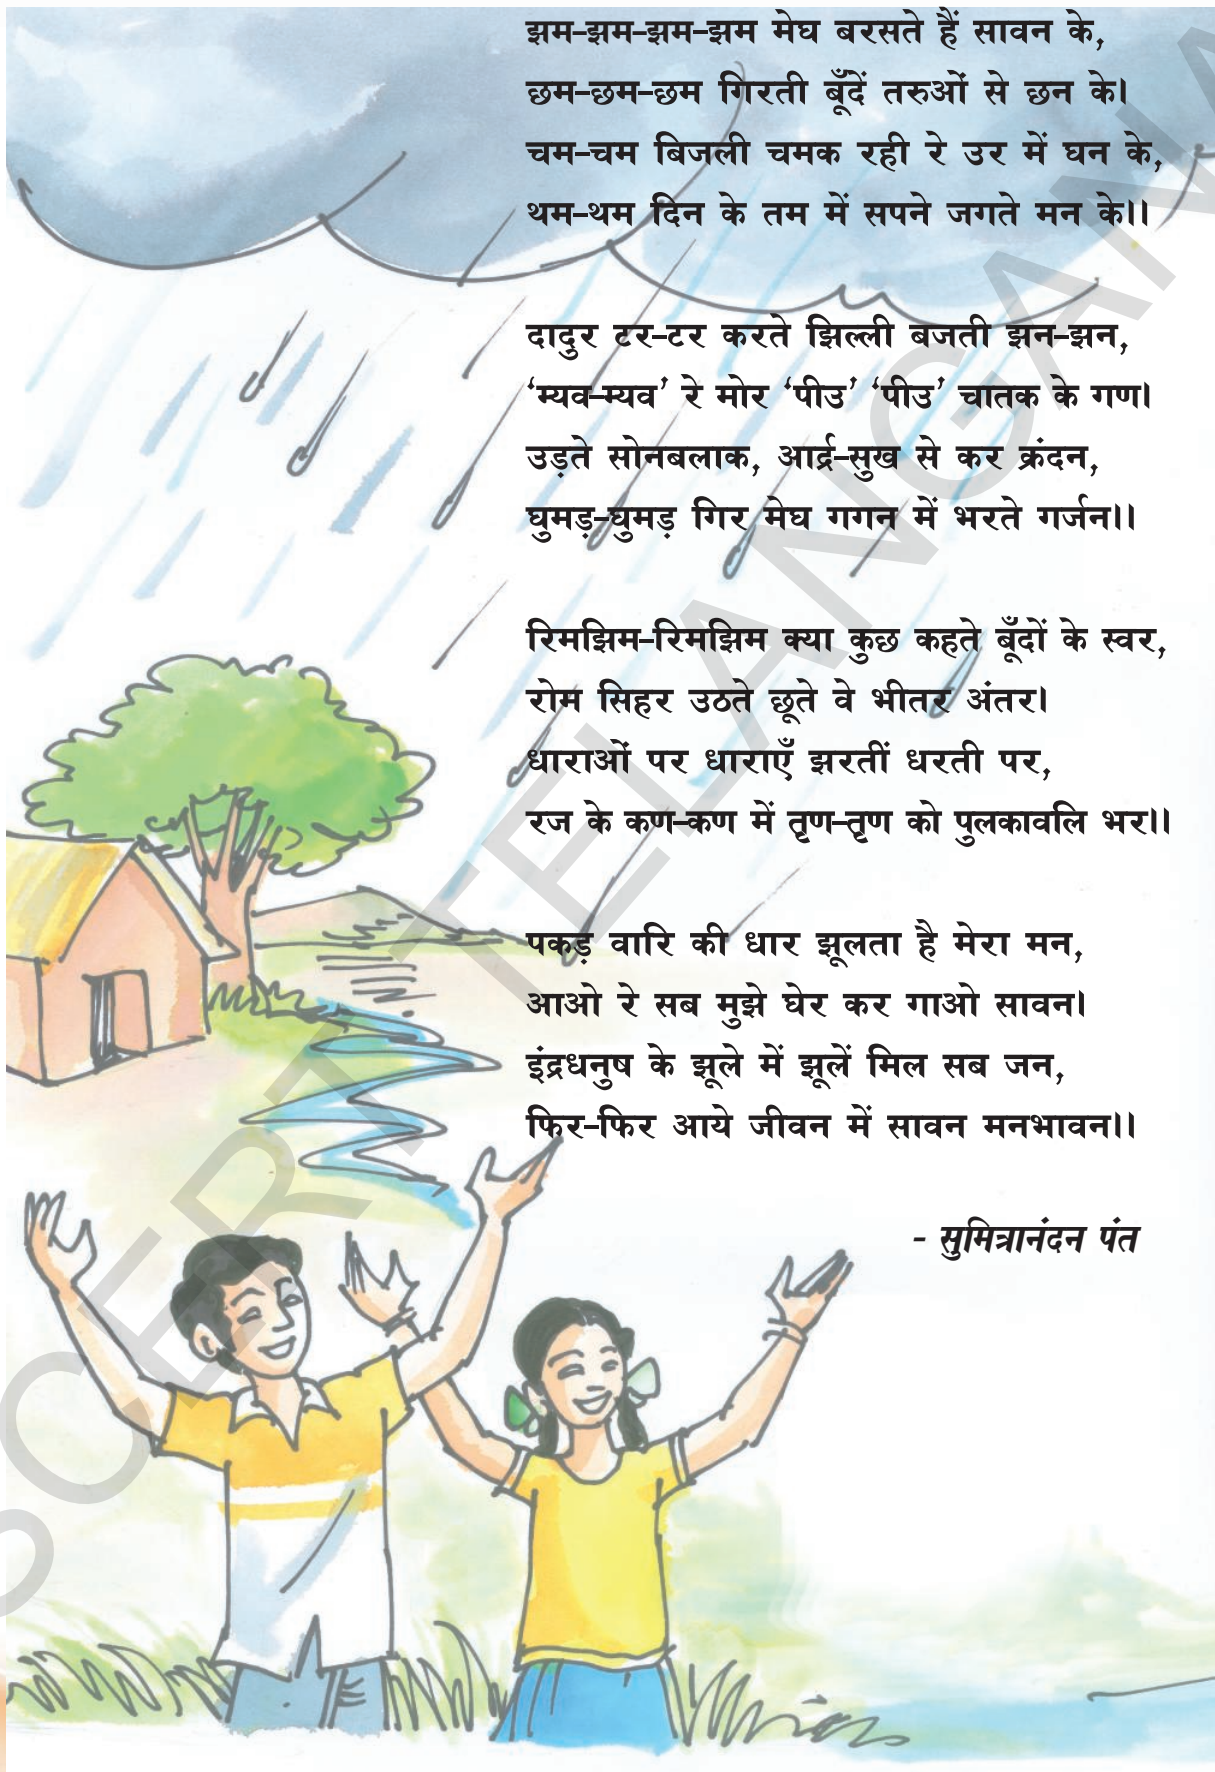 झम-झम-झम-झम मेघ बरसते हैं सावन के,
छम-छम-छम गिरती बूँदें तरुओं से छन के।
चम-चम बिजली चमक रही रे उर में घन के,
थम-थम दिन के तम में सपने जगते मन के।।
दादुर टर-टर करते झिल्ली बजती झन-झन,
‘म्यव-म्यव’ रे मोर ‘पीउ’ ‘पीउ’ चातक के गण।
उड़ते सोनबलाक, आर्द्र-सुख से कर क्रंदन,
घुमड़-घुमड़ गिर मेघ गगन में भरते गर्जन।।
रिमझिम-रिमझिम क्या कुछ कहते बूँदों के स्वर,
रोम सिहर उठते छूते वे भीतर अंतर।
धाराओं पर धाराएँ झरतीं धरती पर,
रज के कण-कण में तृण-तृण को पुलकावलि भर।।
पकड़ वारि की धार झूलता है मेरा मन,
आओ रे सब मुझे घेर कर गाओ सावन।
इंद्रधनुष के झूले में झूलें मिल सब जन,
फिर-फिर आये जीवन में सावन मनभावन।।
- सुमित्रानंदन पंत
SCERT TELANGANA